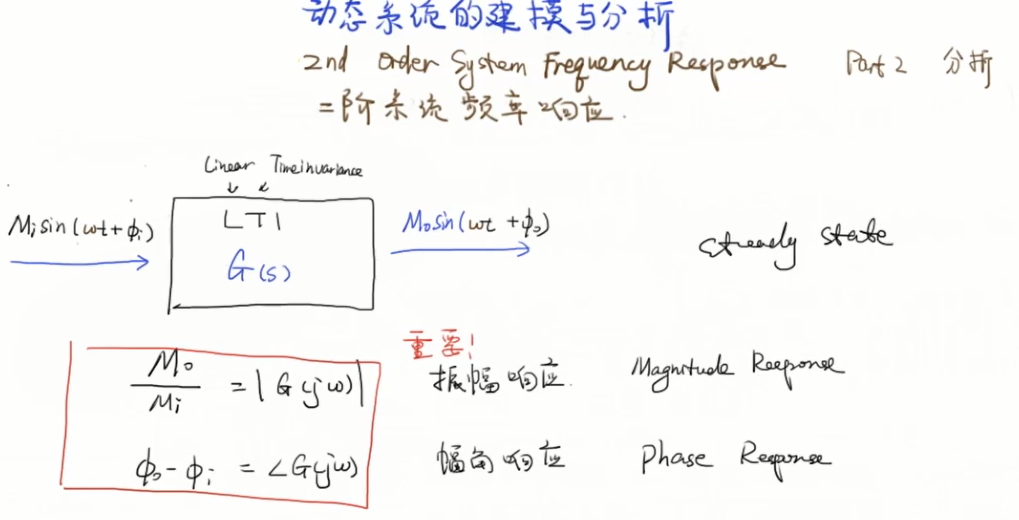 动态系统的建模与分析
2nd Order System Frequency Response Part 2 分析
二阶系统频率响应.
Linear Timeinvariance
Misin(ωt+ϕi)
LTI
G(s)
Mosin(ωt+ϕo)
steady state
重要!
Mo/Mi = |G(jω)| 振幅响应. Magnitude Response
ϕo-ϕi = ∠G(jω) 幅角响应 Phase Response